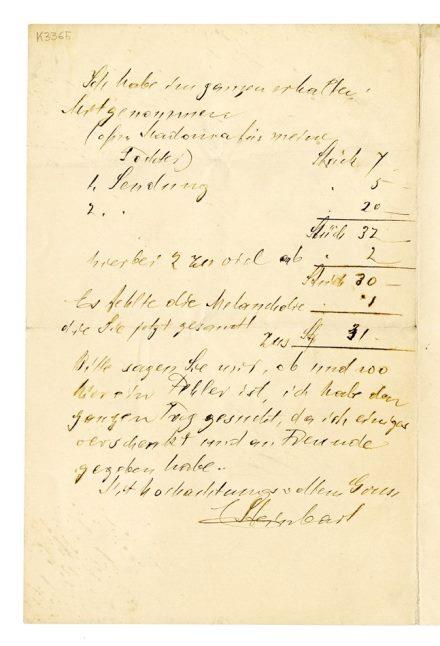 K3365
Ich habe im ganzen erhalten:
Mitgenommen
(ohne Madonna für meine
Tochter) Stück 7 —
1. Sendung " 5 —
2. " " 20 —
Stück 32
hierbei 2 zu viel ab " 2
Stück 30 —
Es fehlte die Melancholie " 1
die Sie jetzt gesandt
zus 31 —
Bitte sagen Sie mir, ob und wo
hier ein Fehler ist, ich habe den
ganzen Tag gesucht, da ich einiges
verschenkt und an Freunde
gegeben habe.
Mit hochachtungsvollem Gruss
Steinbart